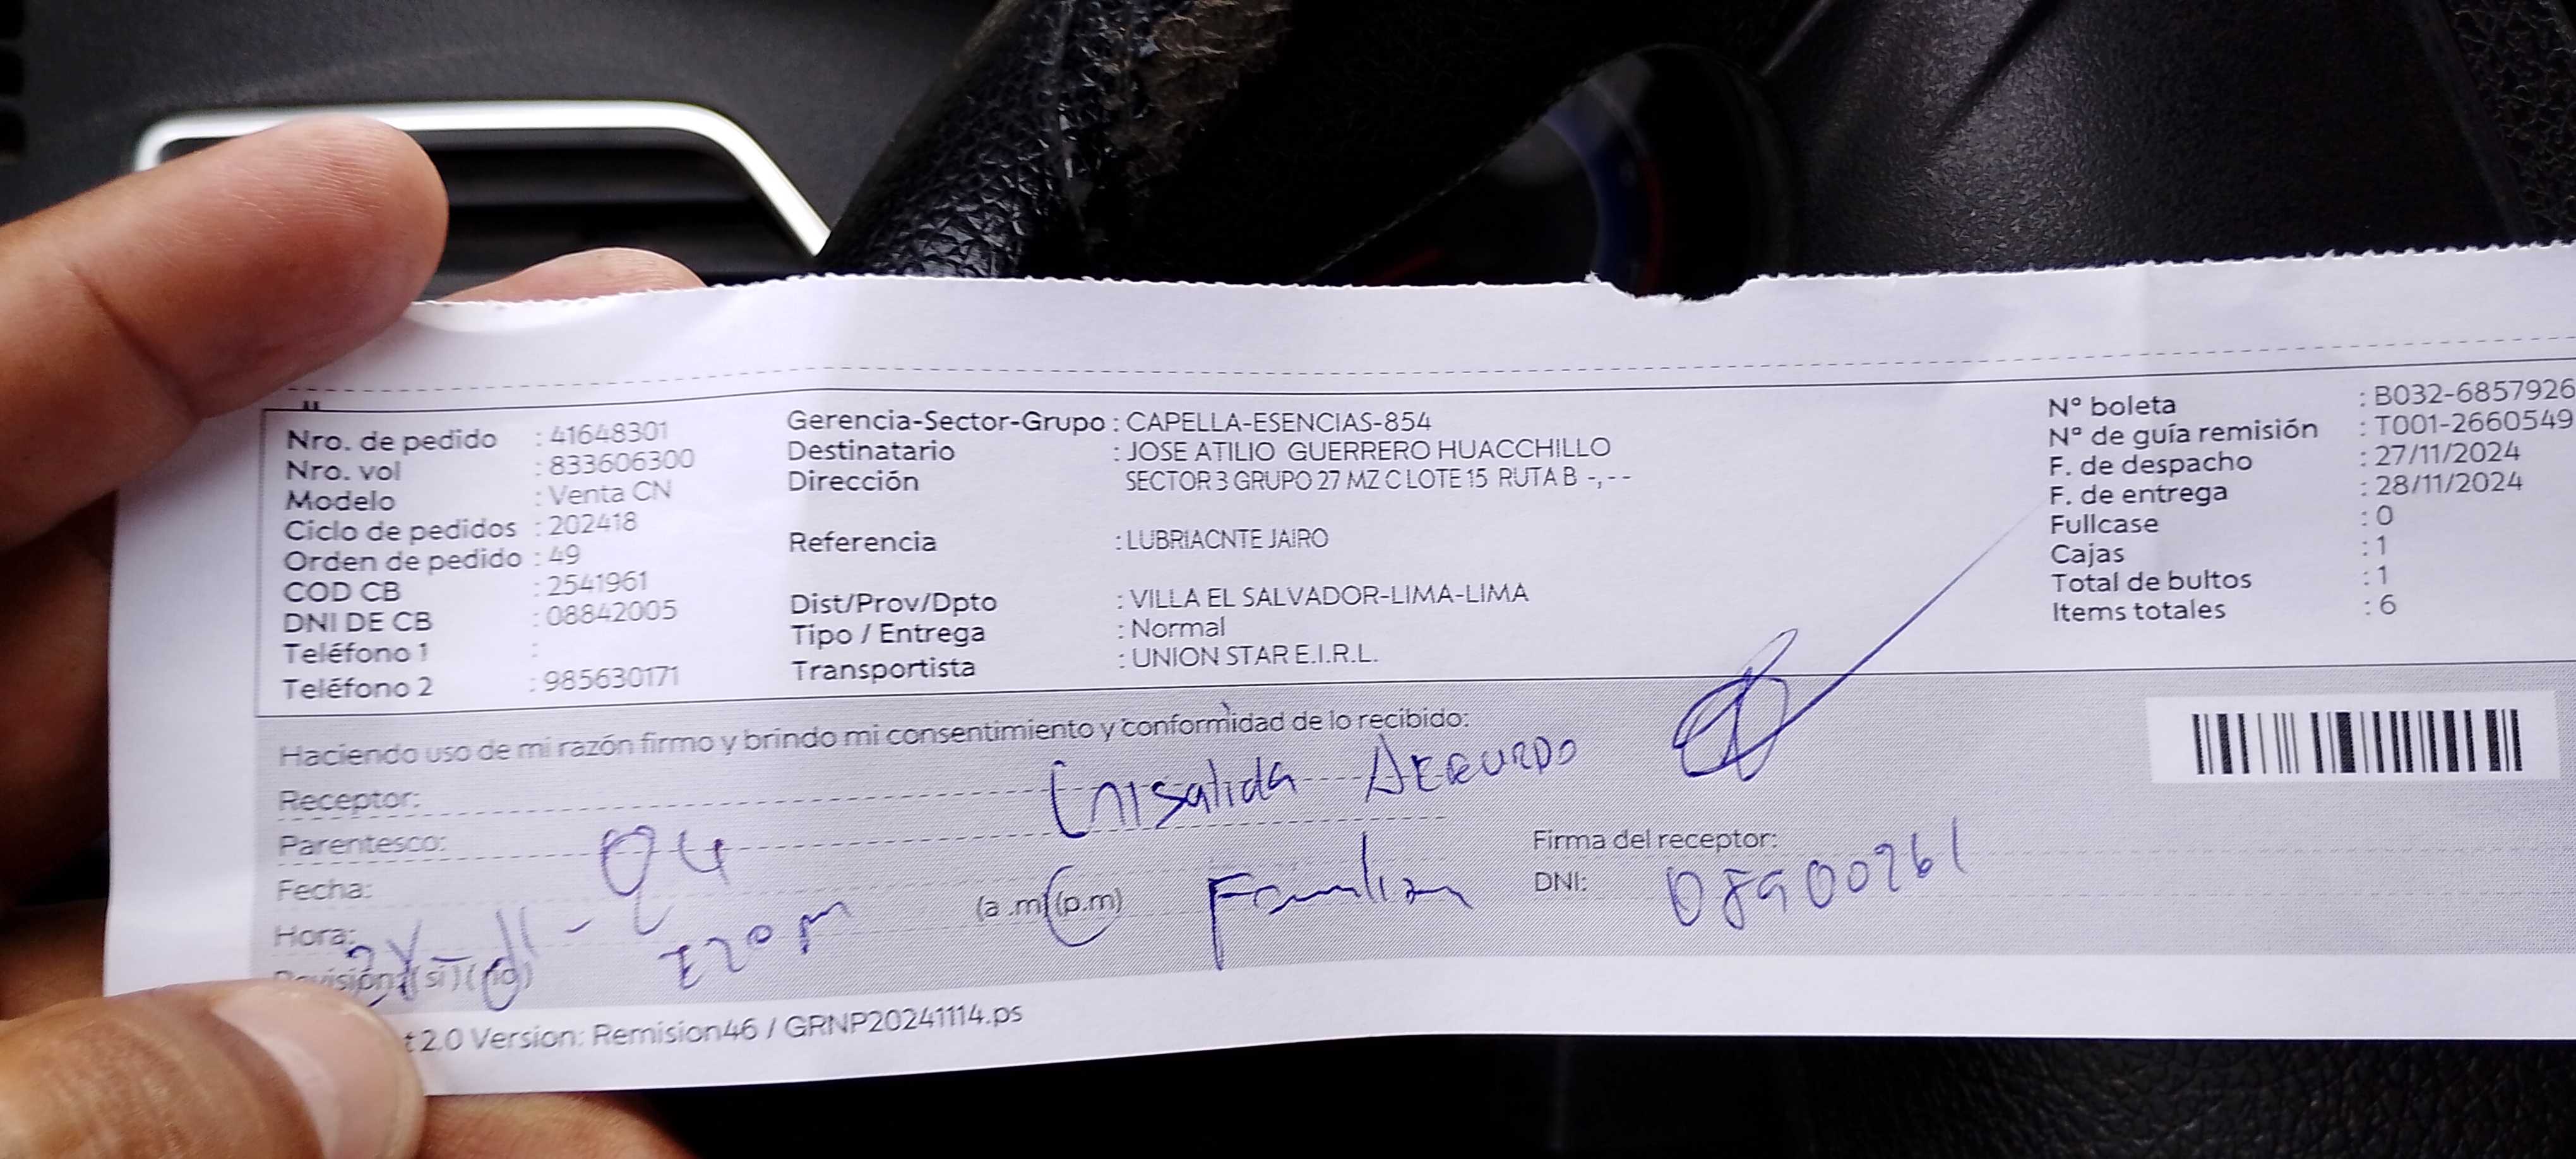 Nro. de pedido : 41648301
Nro. vol : 833606300
Modelo : Venta CN
Ciclo de pedidos : 202418
Orden de pedido : 49
COD CB : 2541961
DNI DE CB : 08842005
Teléfono 1 :
Teléfono 2 : 985630171
Gerencia-Sector-Grupo : CAPELLA-ESENCIAS-854
Destinatario : JOSE ATILIO GUERRERO HUACCHILLO
Dirección SECTOR 3 GRUPO 27 MZ C LOTE 15 RUTA B -,--
Referencia : LUBRIACNTE JAIRO
Dist/Prov/Dpto : VILLA EL SALVADOR-LIMA-LIMA
Tipo / Entrega : Normal
Transportista : UNION STAR E.I.R.L.
Nº boleta : B032-6857926
Nº de guía remisión : T001-2660549
F. de despacho : 27/11/2024
F. de entrega : 28/11/2024
Fullcase : 0
Cajas : 1
Total de bultos : 1
Items totales : 6
Haciendo uso de mi razón firmo y brindo mi consentimiento y conformidad de lo recibido:
Receptor:
Parentesco:
Fecha:
Hora: (a.m) (p.m)
(si) (no)
Firma del receptor:
DNI: 08900261
t 2.0 Version: Remision46 / GRNP20241114.ps